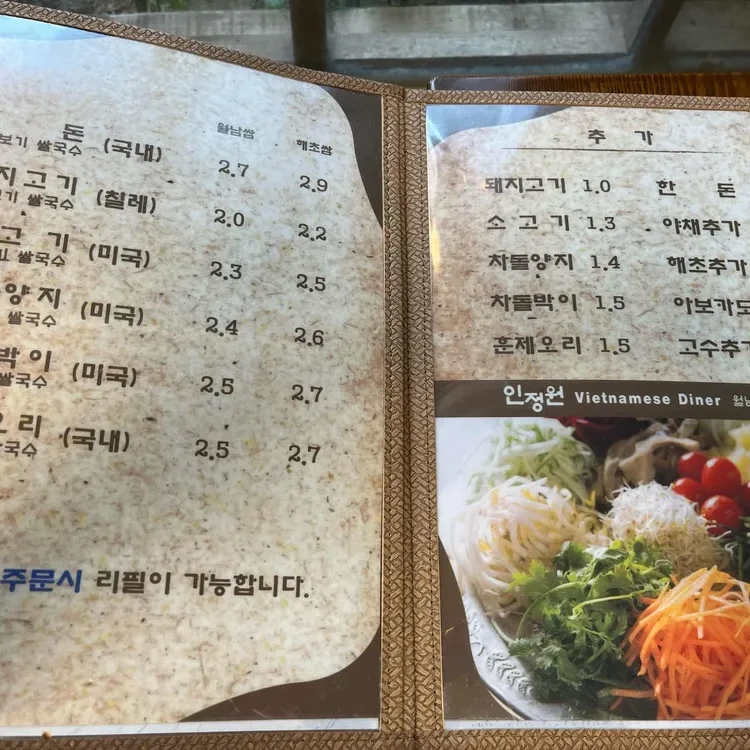 월남쌈 해초쌈
돈 (국내) 2.7 2.9
보기 쌀국수
지고기 (칠레) 2.0 2.2
기 쌀국수
고기 (미국) 2.3 2.5
쌀국수
양지 (미국) 2.4 2.6
쌀국수
박이 (미국) 2.5 2.7
쌀국수
오리 (국내) 2.5 2.7
국수
주문시 리필이 가능합니다.
추가
돼지고기 1.0 한돈
소고기 1.3 야채추가
차돌양지 1.4 해초추가
차돌박이 1.5 아보카도
훈제오리 1.5 고수추가
인정원 Vietnamese Diner 월남